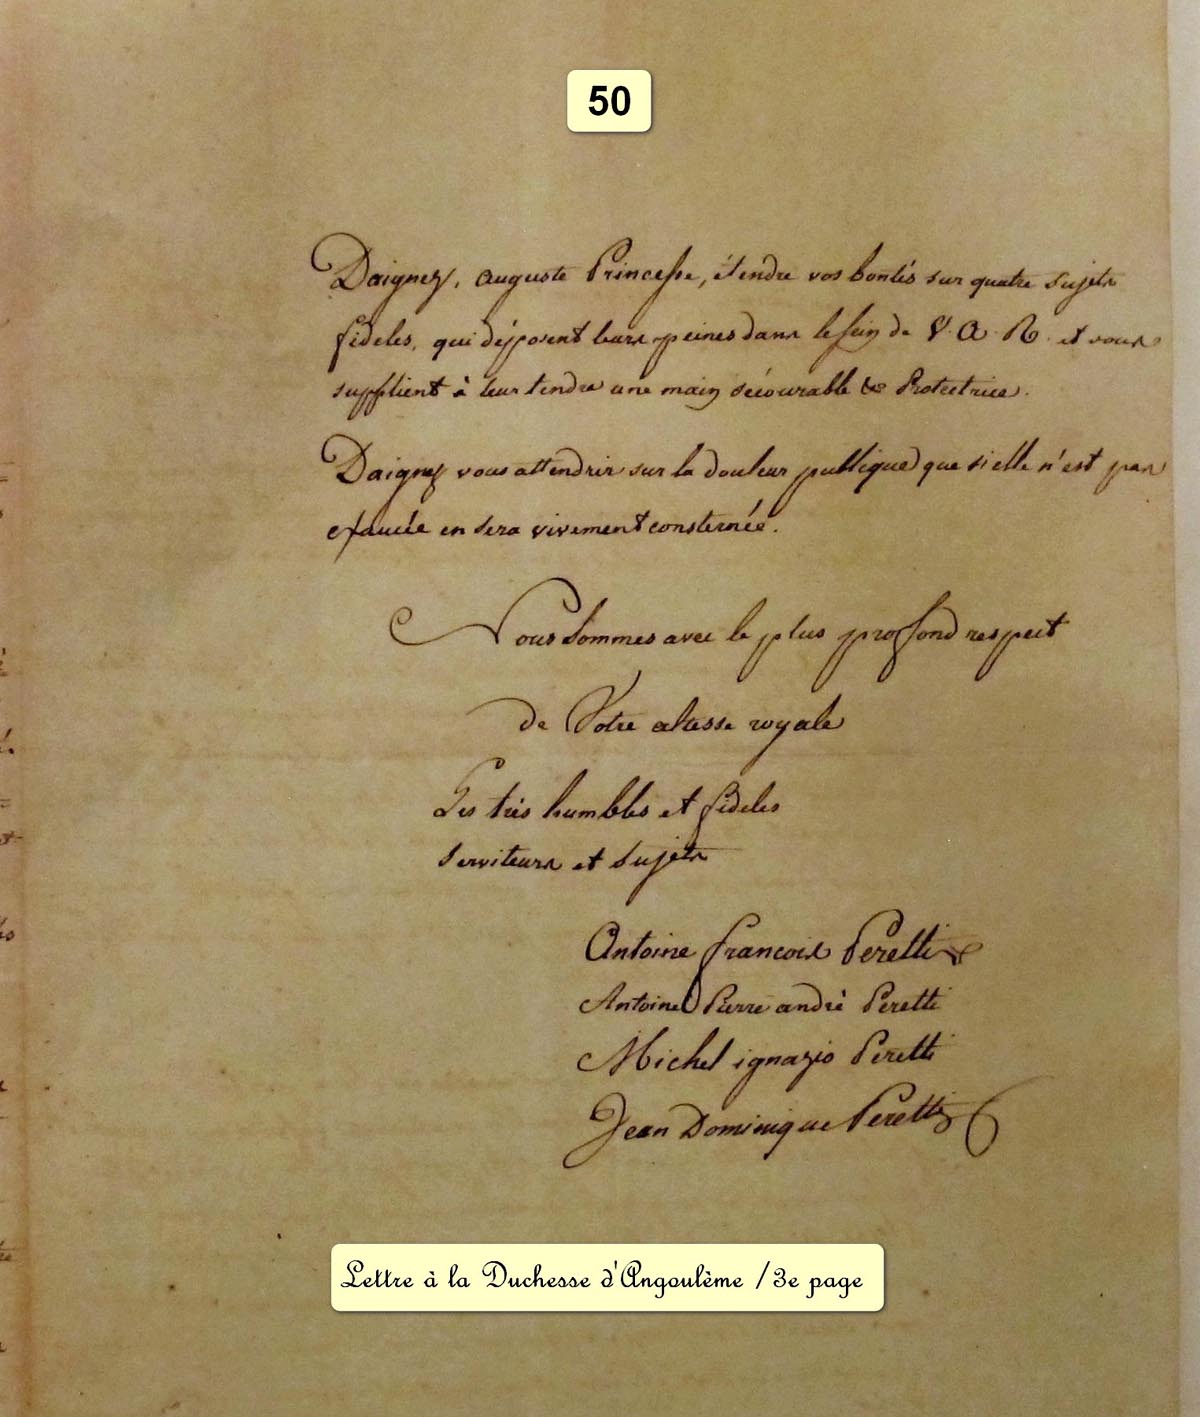 50
Daignez, auguste Princesse, étendre vos bontés sur quatre sujets
fideles, qui déposent leurs peines dans le sein de V. A. R. et vous
supplient à leur tendre une main sécourable & Protectrice.
Daignez vous attendrir sur la douleur publique que si elle n'est pas
exaucée en sera vivement consternée.
Nous sommes avec le plus profond respect
de Votre altesse royale
Les très humbles et fideles
serviteurs et sujets
Antoine francois Peretti
Antoine Pierre andrè Peretti
Michel ignazio Peretti
Jean Dominique Peretti
Lettre à la Duchesse d'Angoulème /3e page